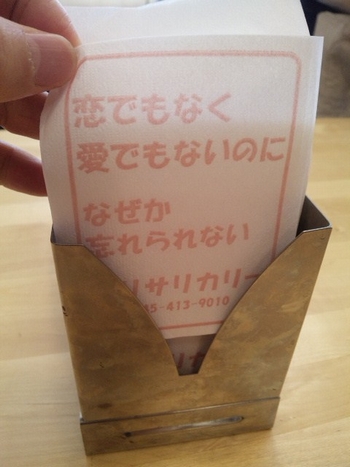 恋でもなく
愛でもないのに
なぜか
忘れられない
リサリカリー
5-413-9010